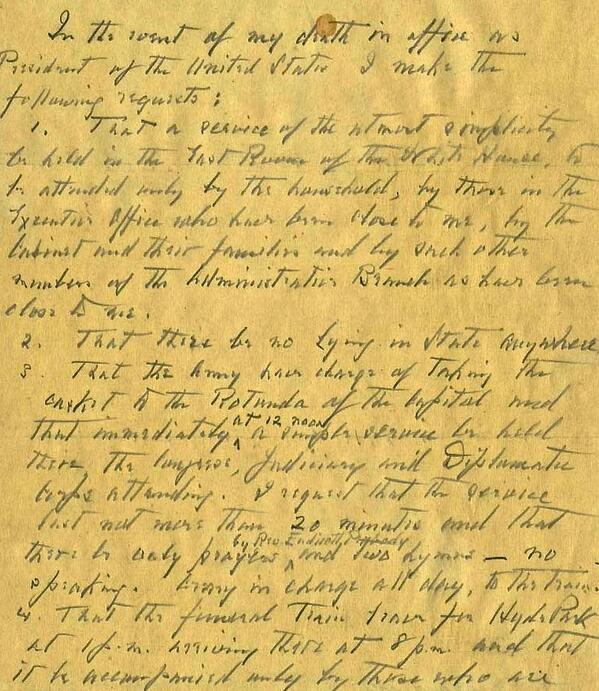 In the event of my death in office as
President of the United States I make the
following requests:
1. That a service of the utmost simplicity
be held in the East Room of the White House, to
be attended only by the household, by those in the
Executive Office who have been close to me, by the
Cabinet and their families and by such other
members of the Administrative Branch as have been
close to me.
2. That there be no lying in State anywhere
3. That the Army have charge of taking the
casket to the Rotunda of the Capitol and
at 12 noon
that immediately a simple service be held
there, the Congress, Judiciary and Diplomatic
Corps attending. I request that the service
last not more than 20 minutes and that
by Rev. Endicott Peabody
there be only prayers and two hymns — no
speaking. Army in charge all day, to the train.
4. That the funeral train leave for Hyde Park
at 1 p.m. arriving there at 8 p.m. and that
it be accompanied only by those who are